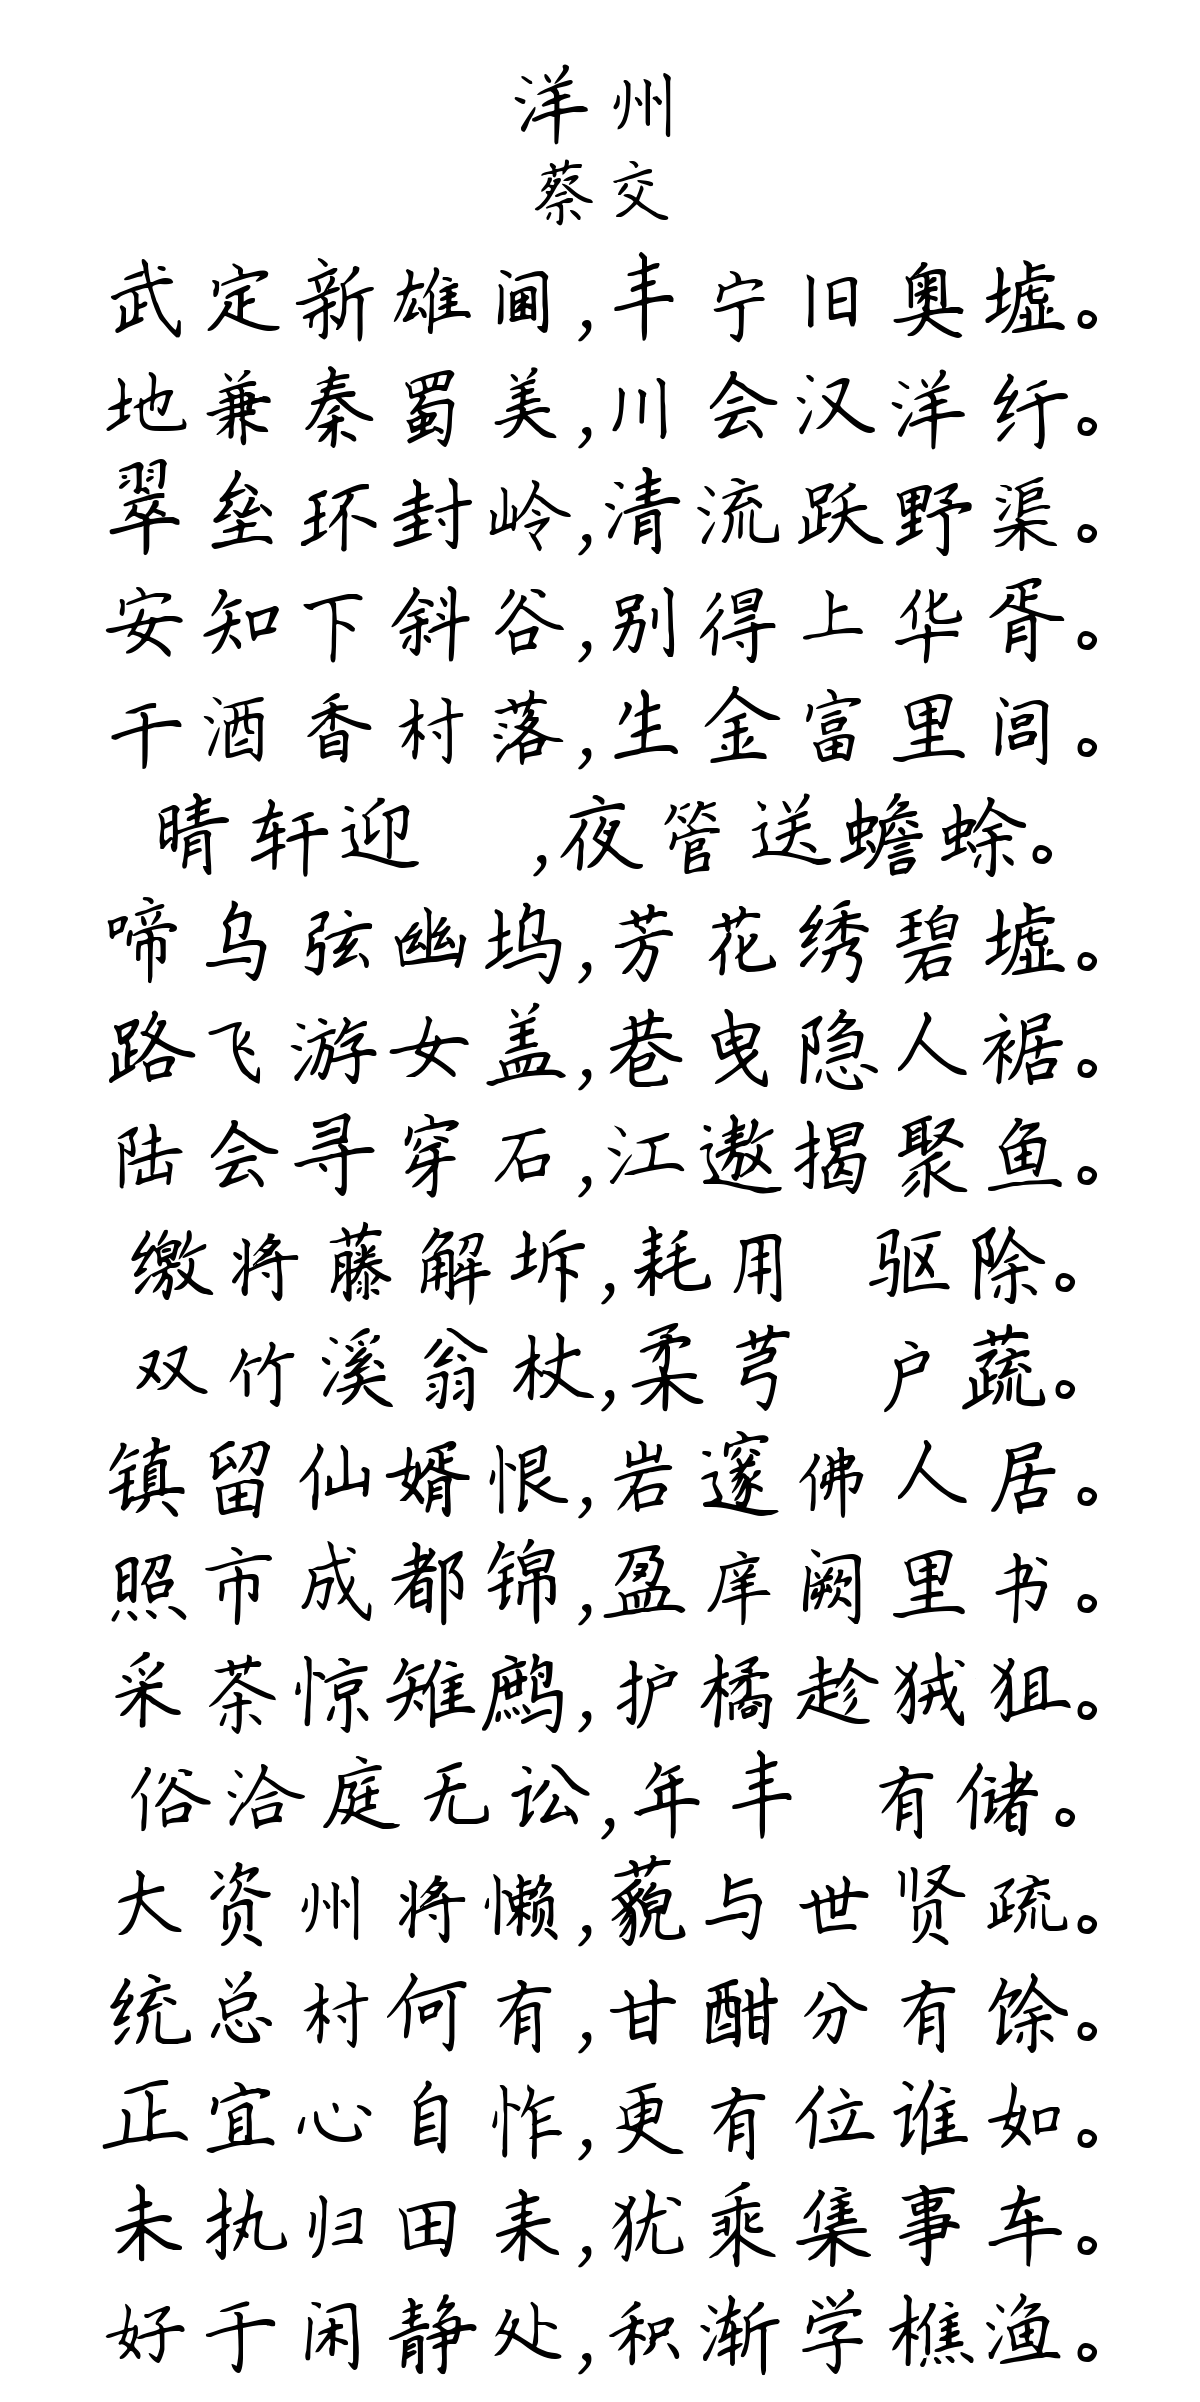 洋州
蔡交
武定新雄阃,丰宁旧奥墟。
地兼秦蜀美,川会汉洋纡。
翠垒环封岭,清流跃野渠。
安知下斜谷,别得上华胥。
干酒香村落,生金富里闾。
晴轩迎 ,夜管送蟾蜍。
啼乌弦幽坞,芳花绣碧墟。
路飞游女盖,巷曳隐人裾。
陆会寻穿石,江遨揭聚鱼。
缴将藤解坼,耗用 驱除。
双竹溪翁杖,柔芎 户蔬。
镇留仙婿恨,岩邃佛人居。
照市成都锦,盈庠阙里书。
采茶惊雉鹧,护橘趁狨狙。
俗洽庭无讼,年丰 有储。
大资州将懒,藐与世贤疏。
统总村何有,甘酣分有馀。
正宜心自怍,更有位谁如。
未执归田耒,犹乘集事车。
好于闲静处,积渐学樵渔。